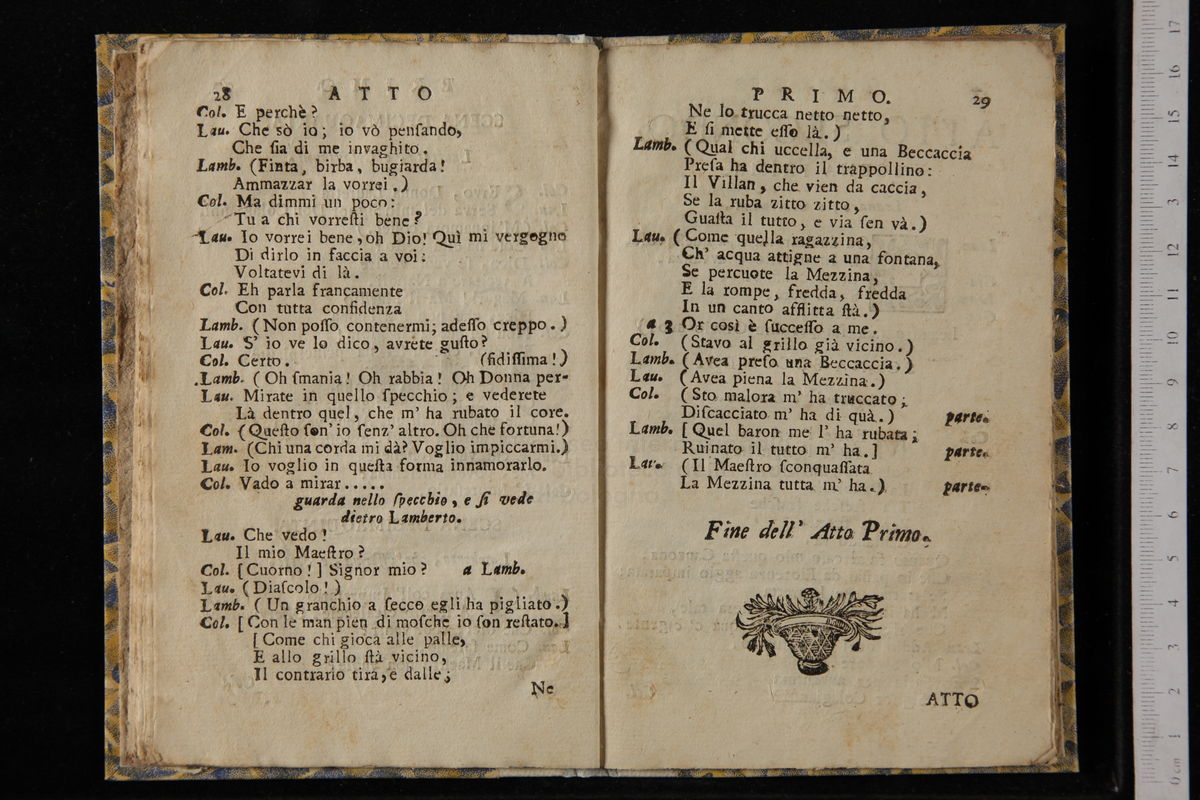 28 ATTO
Col. E perchè?
Lau. Che sò io; io vò penſando,
Che ſia di me invaghito.
Lamb. (Finta, birba, bugiarda!
Ammazzar la vorrei.)
Col. Ma dimmi un poco:
Tu a chi vorreſti bene?
Lau. Io vorrei bene, oh Dio! Quì mi vergogno
Di dirlo in faccia a voi:
Voltatevi di là.
Col. Eh parla francamente
Con tutta confidenza
Lamb. (Non poſſo contenermi; adeſſo creppo.)
Lau. S' io ve lo dico, avrete guſto?
Col. Certo. (fidiſſima!)
Lamb. (Oh ſmania! Oh rabbia! Oh Donna per-
Lau. Mirate in quello ſpecchio; e vederete
Là dentro quel, che m' ha rubato il core.
Col. (Queſto ſon' io ſenz' altro. Oh che fortuna!)
Lam. (Chi una corda mi dà? Voglio impiccarmi.)
Lau. Io voglio in queſta forma innamorarlo.
Col. Vado a mirar.....
guarda nello ſpecchio, e ſi vede
dietro Lamberto.
Lau. Che vedo!
Il mio Maeſtro?
Col. [Cuorno!] Signor mio? a Lamb.
Lau. (Diaſcolo!)
Lamb. (Un granchio a ſecco egli ha pigliato.)
Col. [Con le man pien di moſche io ſon reſtato.]
[Come chi gioca alle palle,
E allo grillo ſtà vicino,
Il contrario tira, e dalle;
Ne
PRIMO. 29
Ne lo trucca netto netto,
E ſi mette eſſo là.)
Lamb. (Qual chi uccella, e una Beccaccia
Preſa ha dentro il trappollino:
Il Villan, che vien da caccia,
Se la ruba zitto zitto,
Guaſta il tutto, e via ſen và.)
Lau. (Come quella ragazzina,
Ch' acqua attigne a una fontana,
Se percuote la Mezzina,
E la rompe, fredda, fredda
In un canto afflitta ſtà.)
a 3 Or così è ſucceſſo a me.
Col. (Stavo al grillo già vicino.)
Lamb. (Avea preſo una Beccaccia.)
Lau. (Avea piena la Mezzina.)
Col. (Sto malora m' ha truccato;
Diſcacciato m' ha di quà.) parte.
Lamb. [Quel baron me l' ha rubata;
Ruinato il tutto m' ha.] parte.
Lau. (Il Maeſtro ſconquaſſata
La Mezzina tutta m' ha.) parte.
Fine dell' Atto Primo.
ATTO
0 cm 1 2 3 4 5 6 7 8 9 10 11 12 13 14 15 16 17